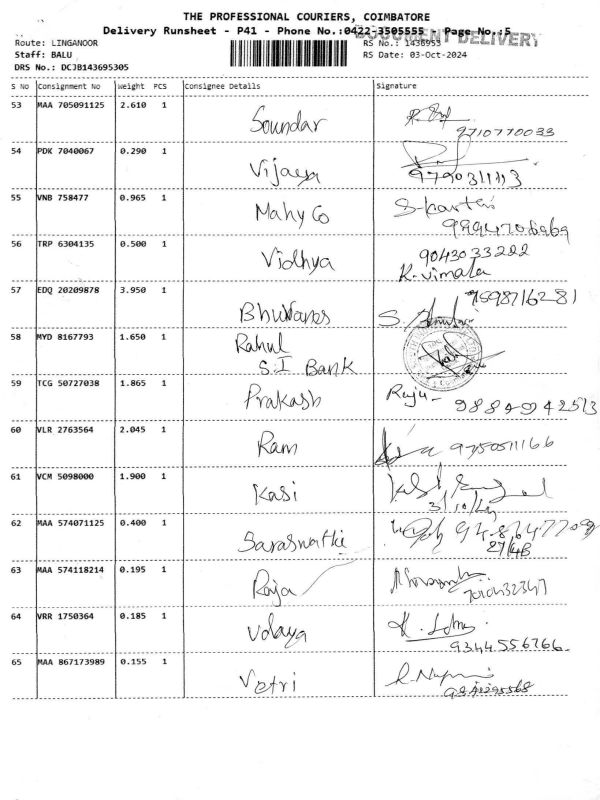 THE PROFESSIONAL COURIERS, COIMBATORE
Delivery Runsheet - P41 - Phone No.:0422-3505555 - Page No.:5
DOCUMENT DELIVERY
Route: LINGANOOR
RS No.: 1436953
Staff: BALU
RS Date: 03-Oct-2024
DRS No.: DCJB143695305
S No Consignment No Weight PCS Consignee Details Signature
53 MAA 705091125 2.610 1 Soundar
9710770033
54 PDK 7040067 0.290 1 Vijaya
9790311113
55 VNB 758477 0.965 1 Mahy Co S-karthi
56 TRP 6304135 0.500 1 Vidhya 9043033222
K.vimala
57 EDQ 20209878 3.950 1 Bhuvanes S.
7598716281
58 MYD 8167793 1.650 1 Rahul
S.I Bank
59 TCG 50727038 1.865 1 Prakash Raju-
9884942513
60 VLR 2763564 2.045 1 Ram 9750511166
61 VCM 5098000 1.900 1 Kasi
3/10/24
62 MAA 574071125 0.400 1 Saraswathi
27/4B
63 MAA 574118214 0.195 1 Raja
64 VRR 1750364 0.185 1 Udaya
9344556766
65 MAA 867173989 0.155 1 Vetri